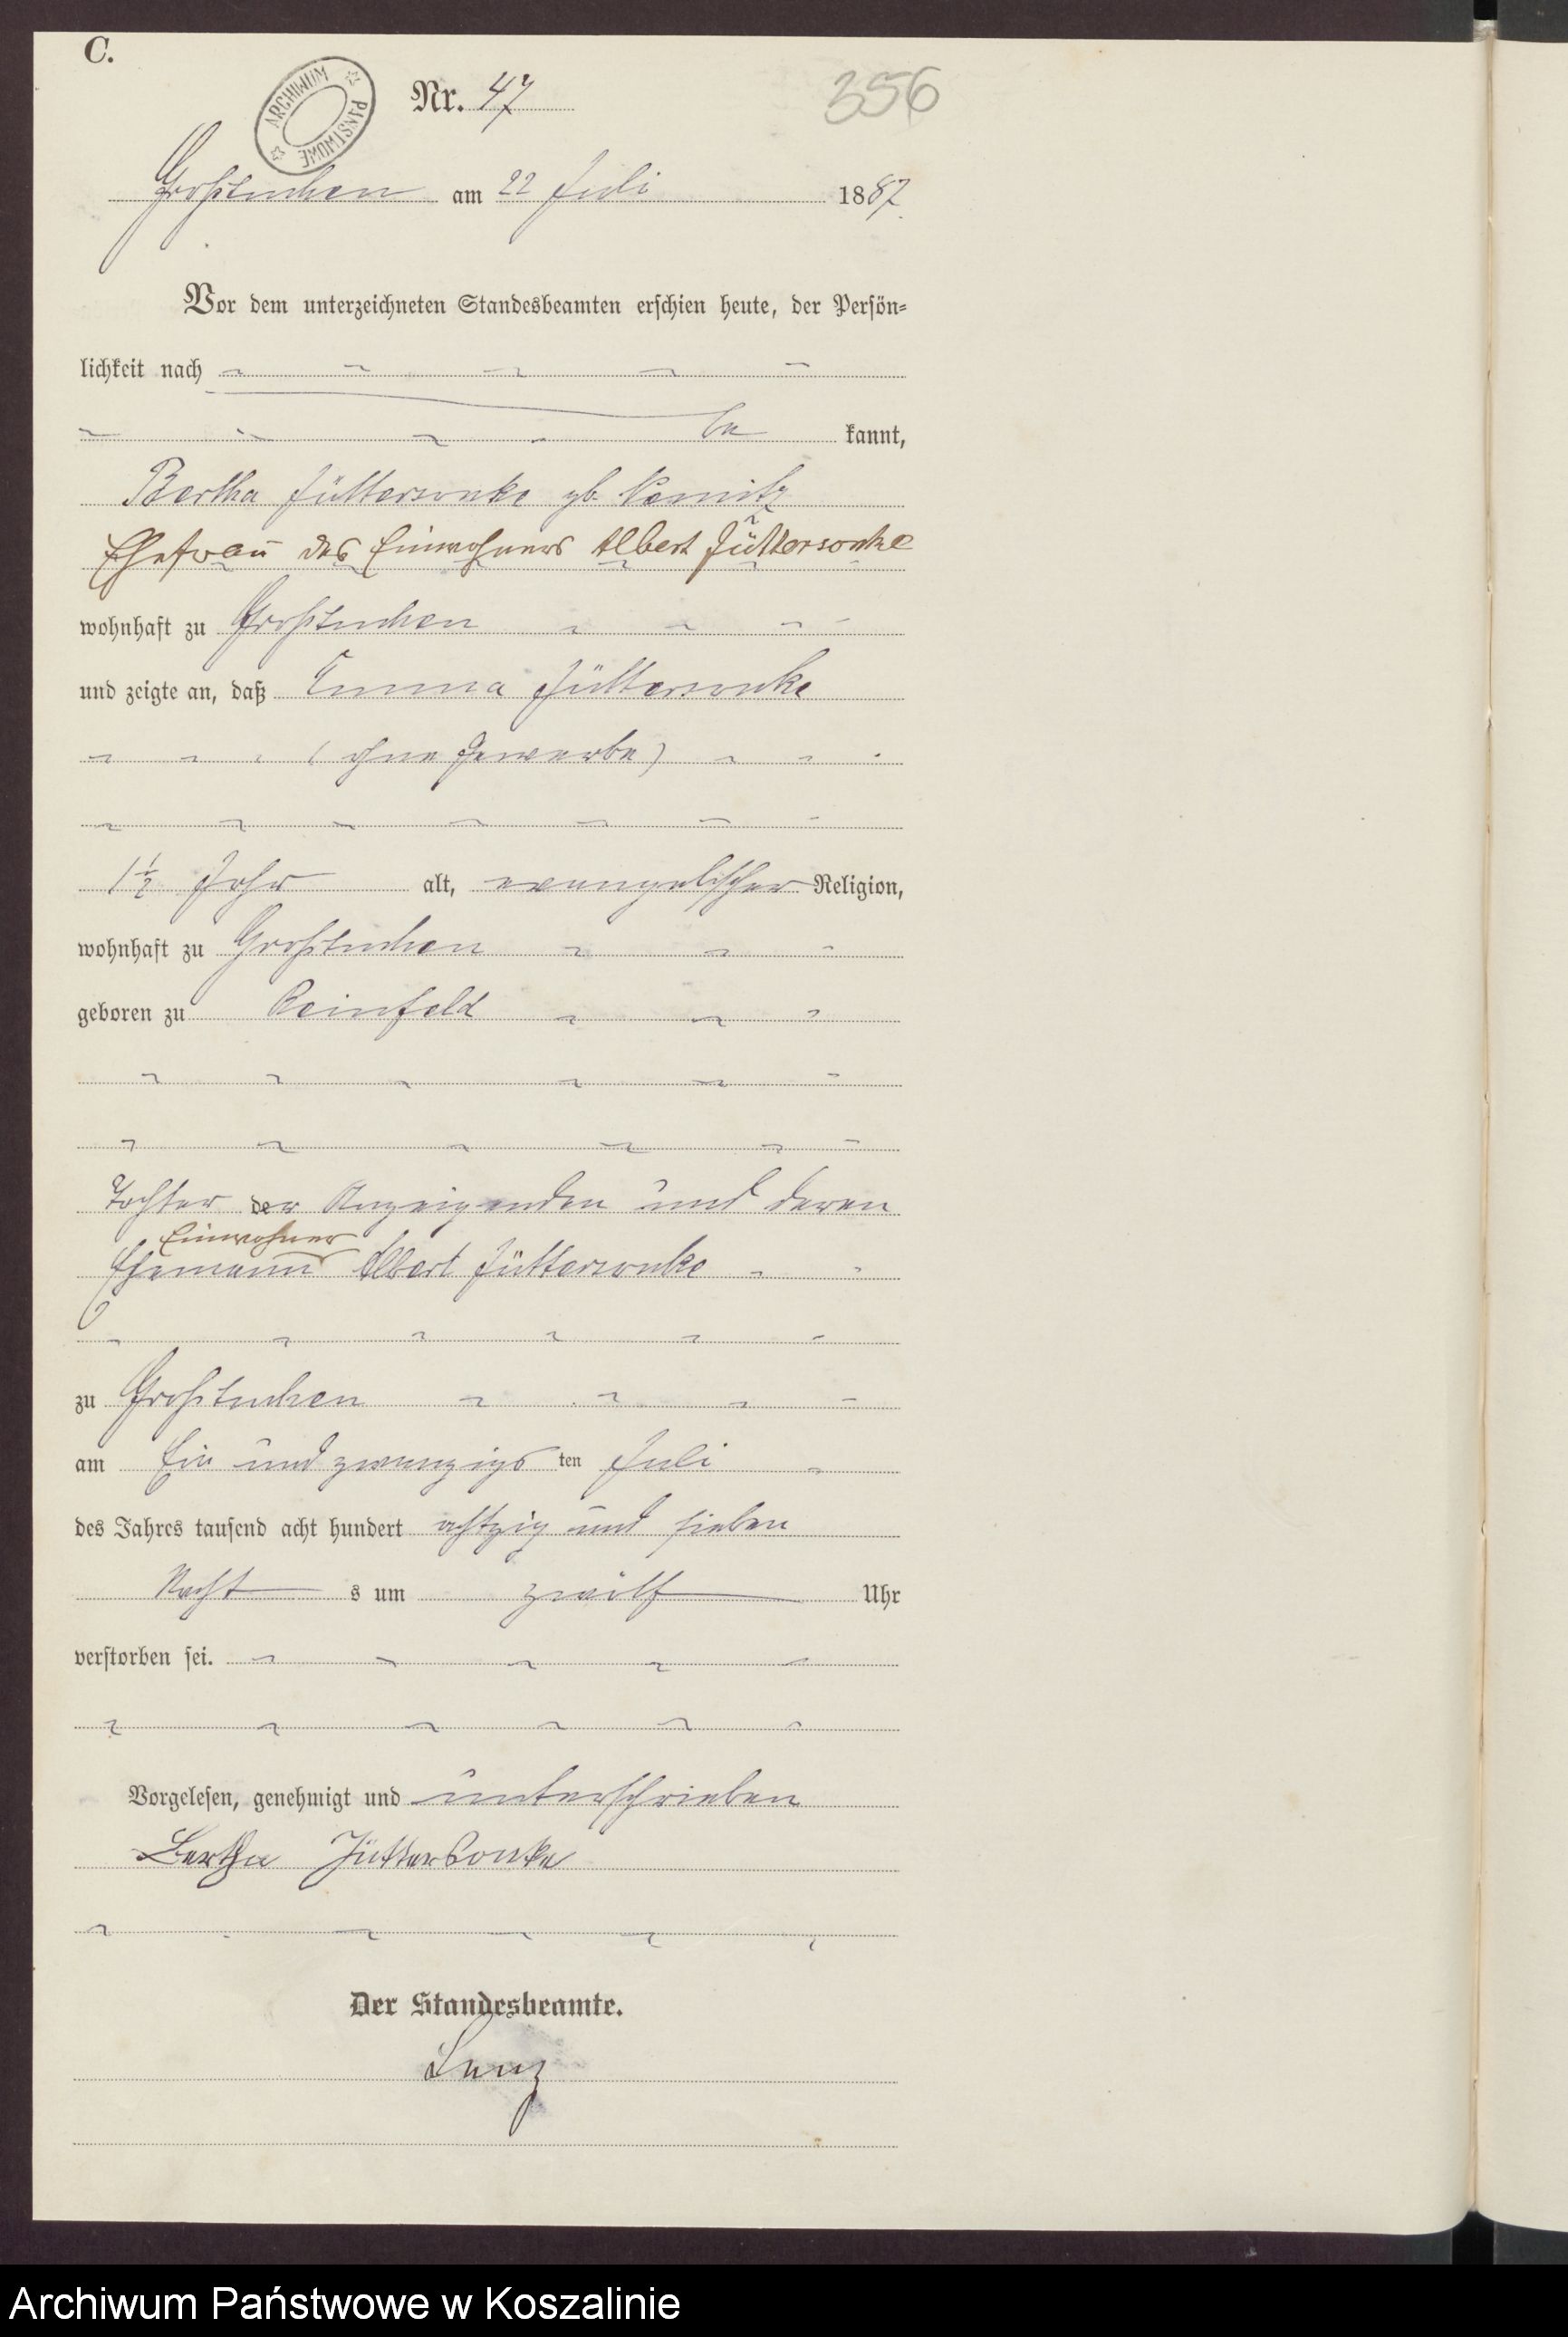 C.
ARCHIWUM PAŃSTWOWE
Nr. 47
356
Großtuchen am 22 Juli 1887
Vor dem unterzeichneten Standesbeamten erschien heute, der Persön=
lichkeit nach
be kannt,
Bertha Jüttersonke gb.
Ehefrau des Einwohners Albert Jüttersonke
wohnhaft zu Großtuchen
und zeigte an, daß Emma Jüttersonke
(ohne Gewerbe)
1½ Jahr alt, evangelischer Religion,
wohnhaft zu Großtuchen
geboren zu Reinfeld
Tochter der Anzeigenden und deren
Einwohner
Ehemann Albert Jüttersonke
zu Großtuchen
am Ein und zwanzigs ten Juli
des Jahres tausend acht hundert achtzig und sieben
Nacht s um zwölf Uhr
verstorben sei.
Vorgelesen, genehmigt und unterschrieben
Bertha Jüttersonke
Der Standesbeamte.
Lenz
Archiwum Państwowe w Koszalinie